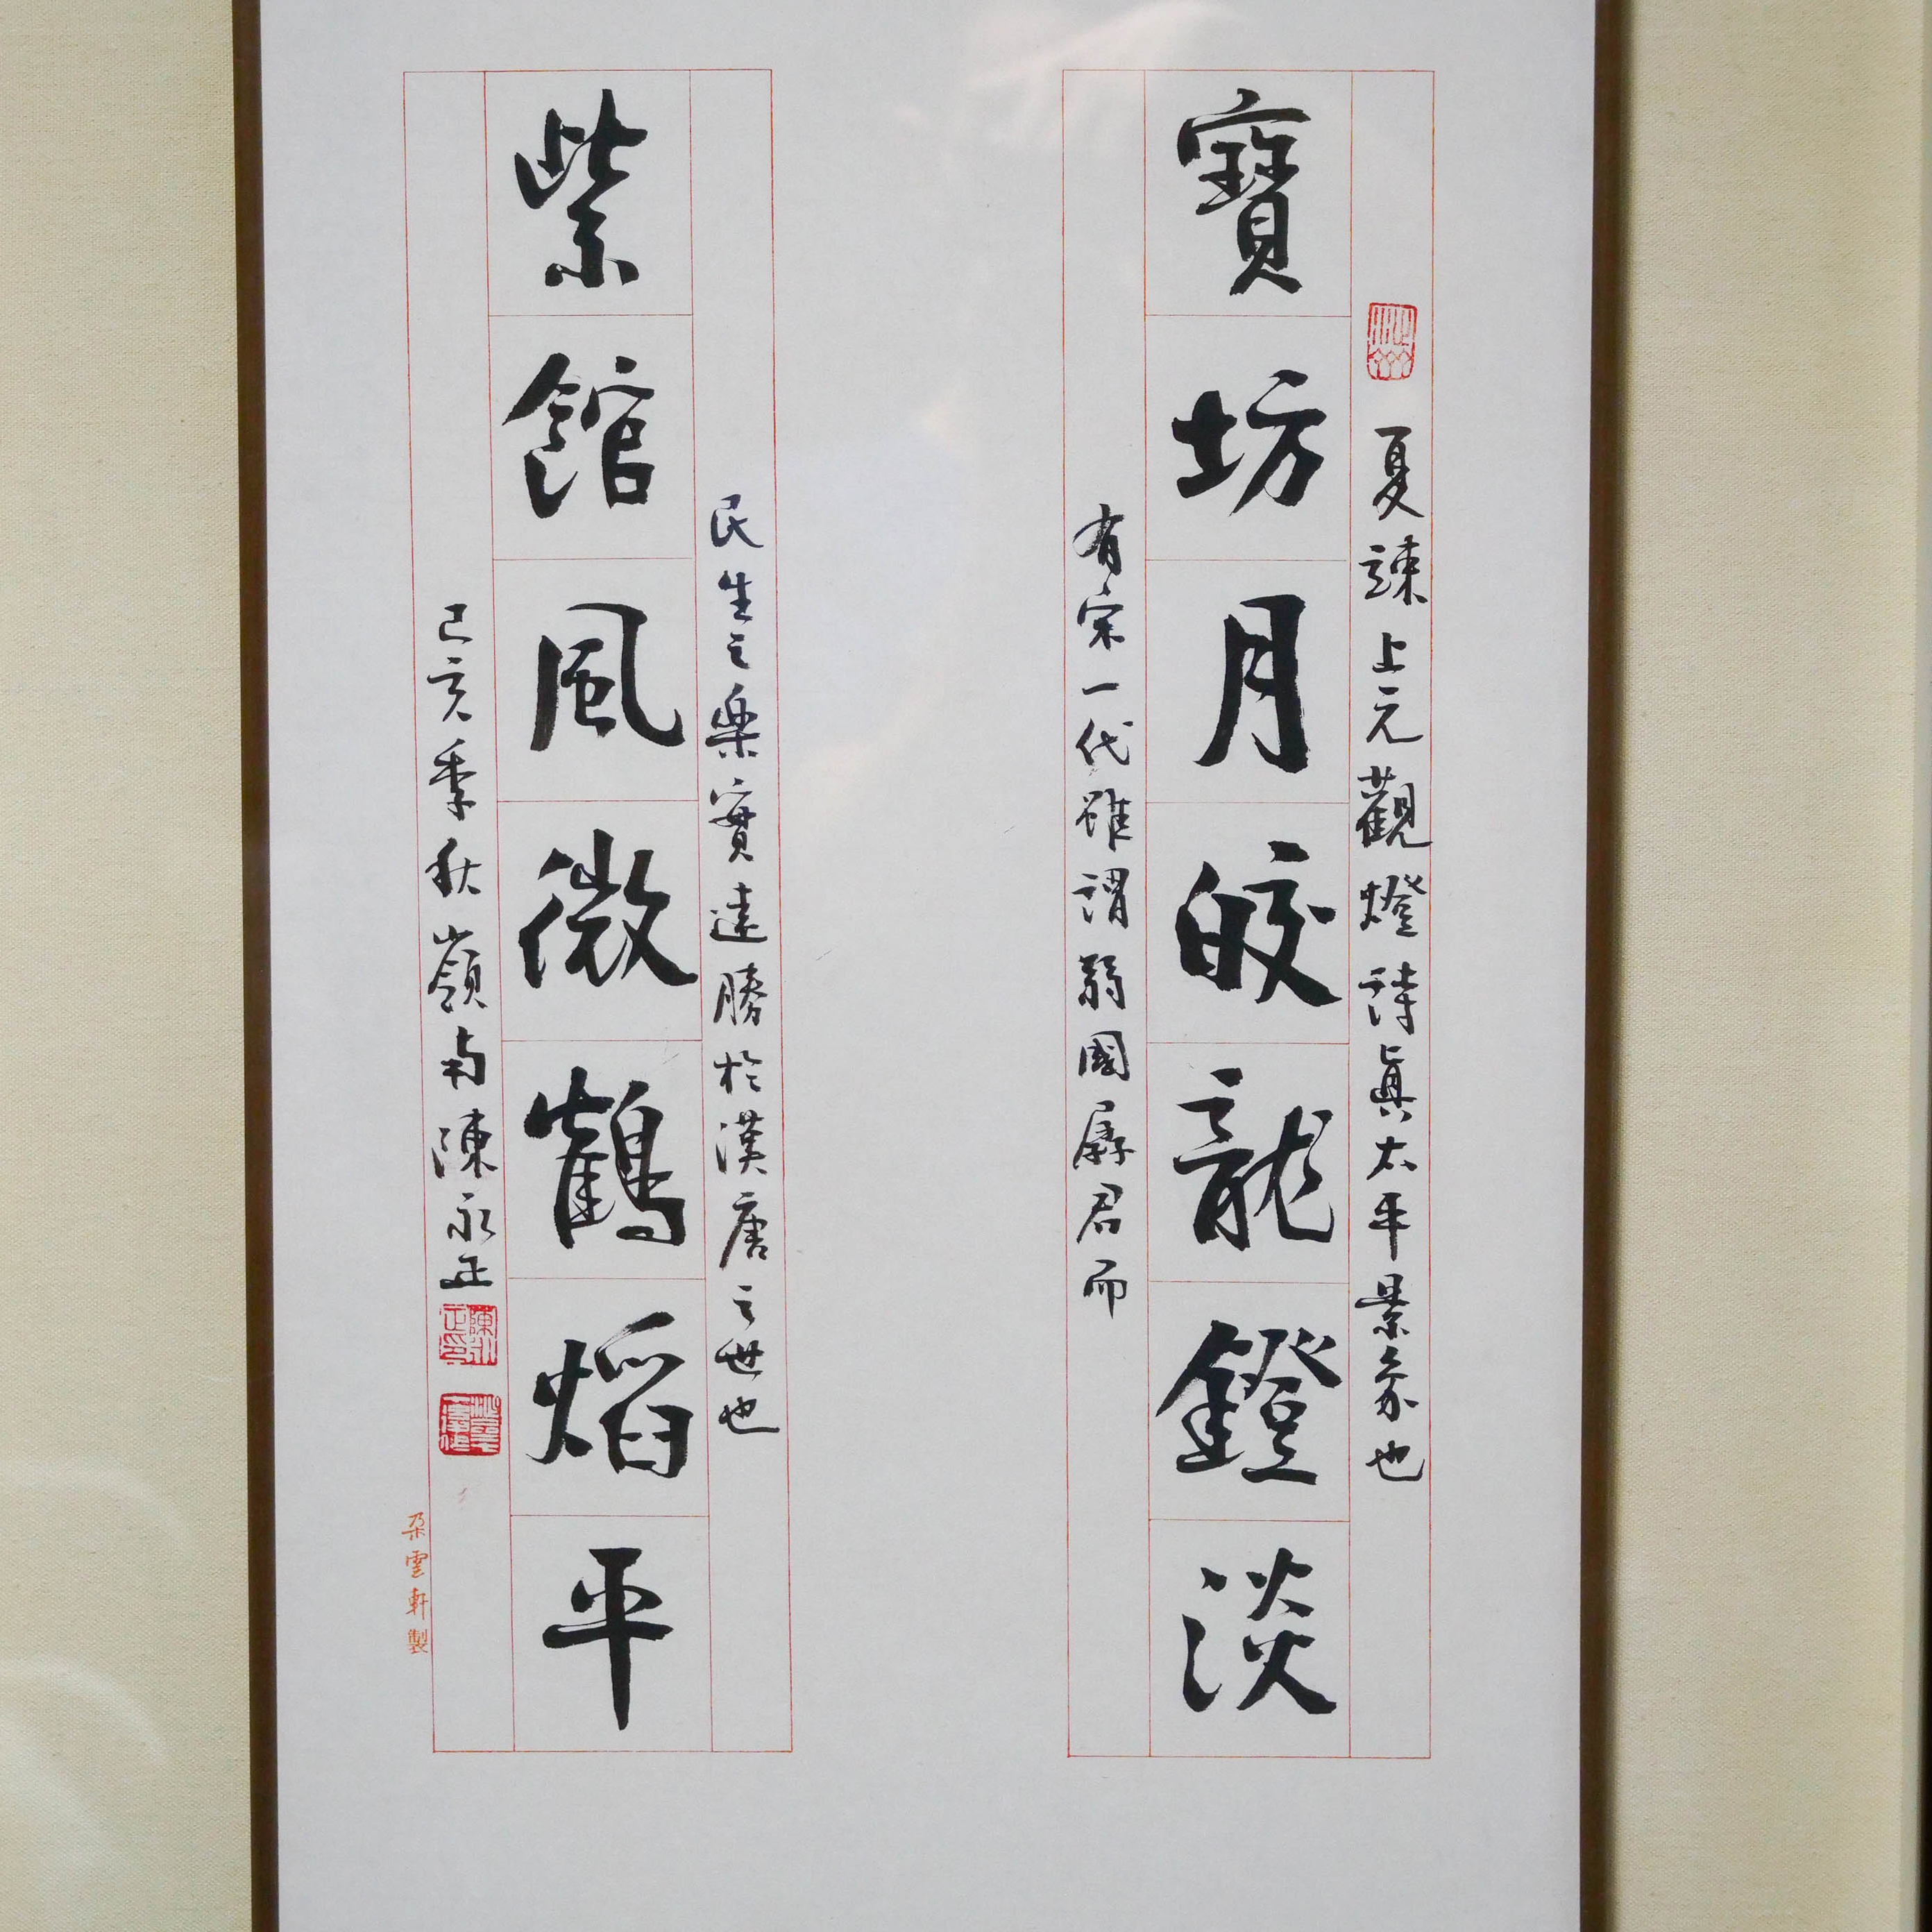 寶坊月皎龍鐙淡
紫館風微鶴焰平
夏竦上元觀燈詩眞太平景象也
有宋一代雖謂弱國孱君而
民生之樂實遠勝於漢唐之世也
己亥季秋嶺南陳永正
朶雲軒製